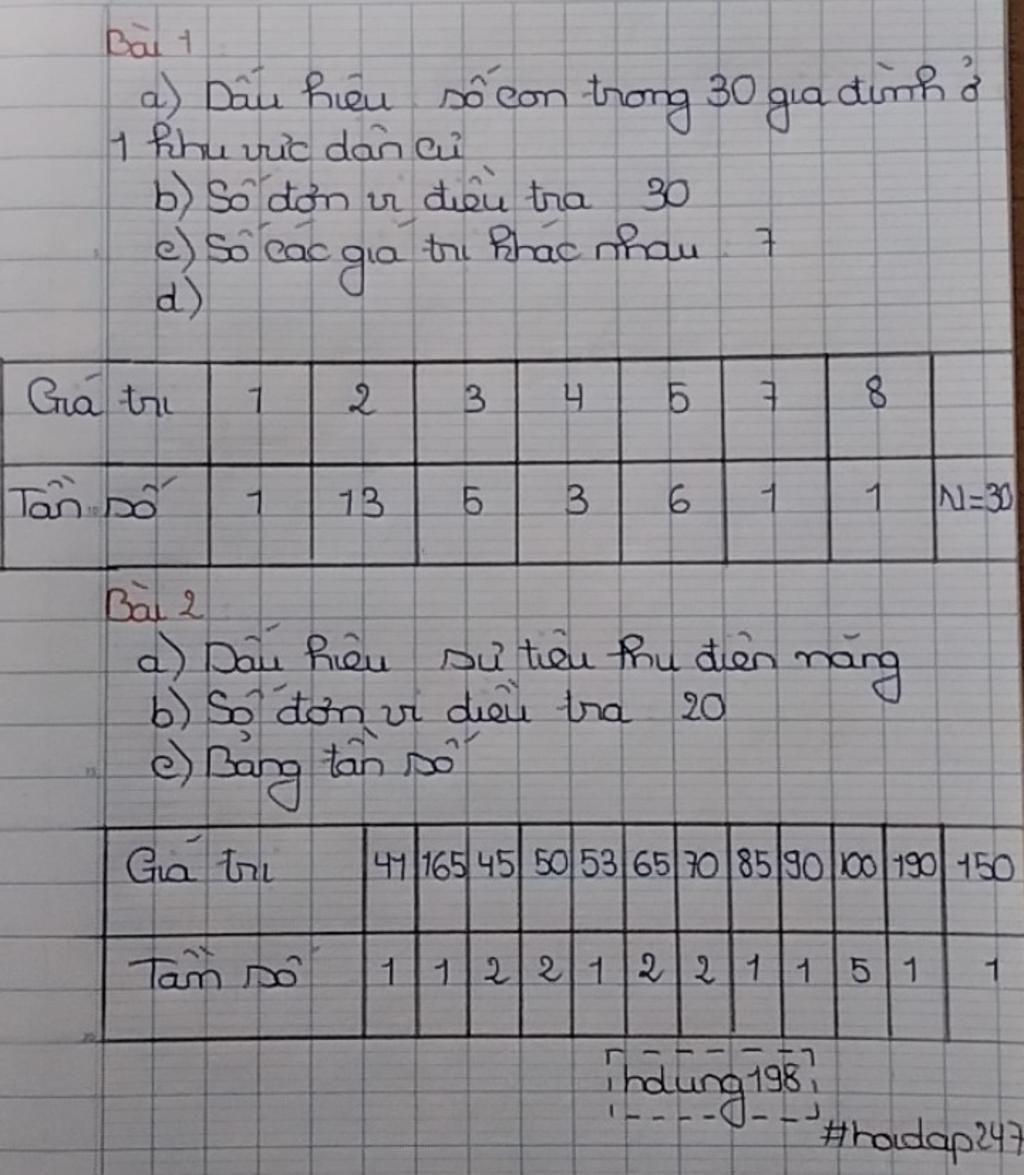 Bài 1
a) Dấu hiệu số con trong 30 gia đình ở
1 khu vực dân cư
b) Số đơn vị điều tra 30
c) Số các giá trị khác nhau 7
d)
Giá trị 1 2 3 4 5 7 8
Tần số 1 13 5 3 6 1 1 N=30
Bài 2
a) Dấu hiệu sự tiêu thụ điện năng
b) Số đơn vị điều tra 20
c) Bảng tần số
Giá trị 41 165 45 50 53 65 70 85 90 100 190 150
Tần số 1 1 2 2 1 2 2 1 1 5 1 1
hdung198
#hoidap247